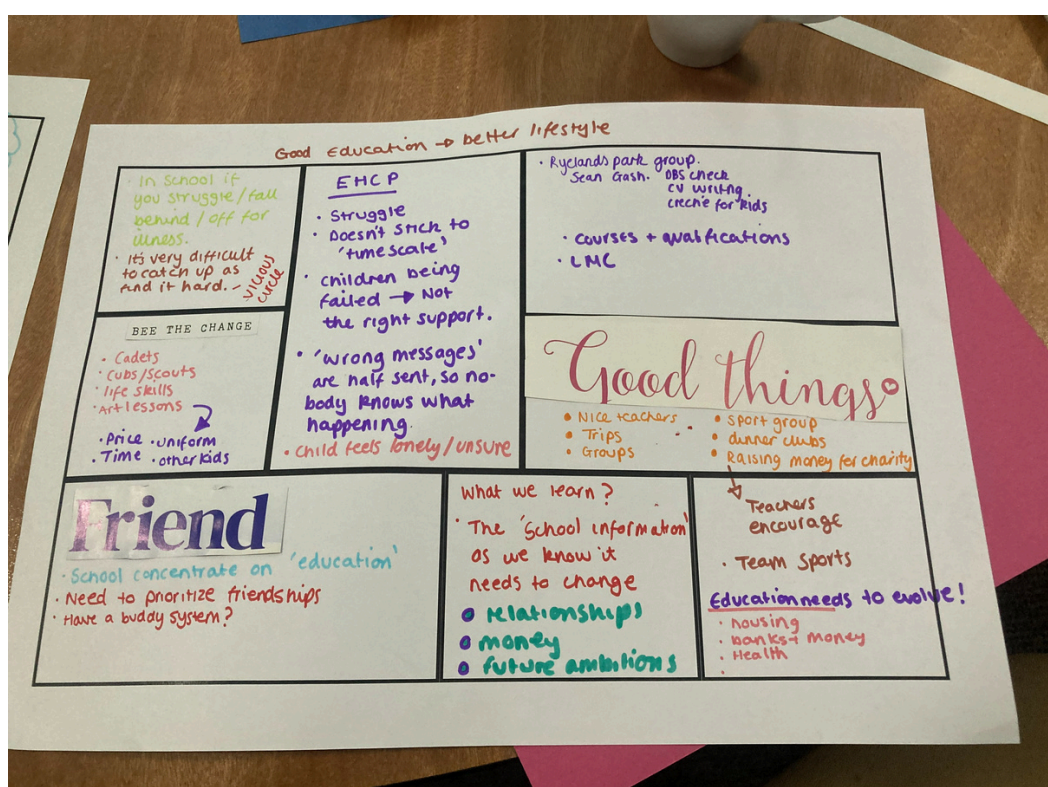 Good Education → better lifestyle
• In School if
you struggle / fall
behind / off for
illness.
• It's very difficult
to catch up as
find it hard. –
vicious
circle
EHCP
• Struggle
• Doesn't stick to
'timescale'
• children being
failed → Not
the right support.
• 'wrong messages'
are half sent, so no-
body knows what
happening.
• Child feels lonely / unsure
• Ryelands park group.
Sean Gash. DBS check
CV writing
creche for kids
• courses + qualifications
• LMC
BEE THE CHANGE
• Cadets
• Cubs/Scouts
• life skills
• Art lessons
• Price • uniform
• Time • other kids
Good things
• Nice teachers
• Trips
• Groups
• sport group
• dinner clubs
• Raising money for charity
Friend
• School concentrate on 'education'
• Need to prioritize friendships
• Have a buddy system?
What we learn?
• The 'school information'
as we know it
needs to change
• relationships
• money
• future ambitions
Teachers
encourage
• Team Sports
Education needs to evolve!
• housing
• banks + money
• Health
•